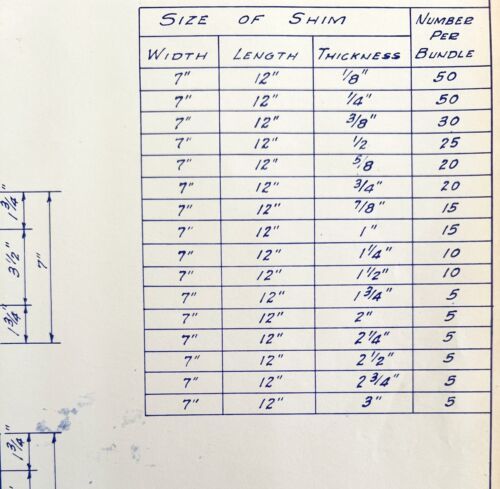 SIZE OF SHIM
NUMBER PER BUNDLE
WIDTH LENGTH THICKNESS
7" 12" 1/8" 50
7" 12" 1/4" 50
7" 12" 3/8" 30
7" 12" 1/2 25
7" 12" 5/8 20
7" 12" 3/4" 20
7" 12" 7/8" 15
7" 12" 1" 15
7" 12" 1 1/4" 10
7" 12" 1 1/2" 10
7" 12" 1 3/4" 5
7" 12" 2" 5
7" 12" 2 1/4" 5
7" 12" 2 1/2" 5
7" 12" 2 3/4" 5
7" 12" 3" 5
1 3/4"
3 1/2"
1 3/4"
7"
1 3/4"